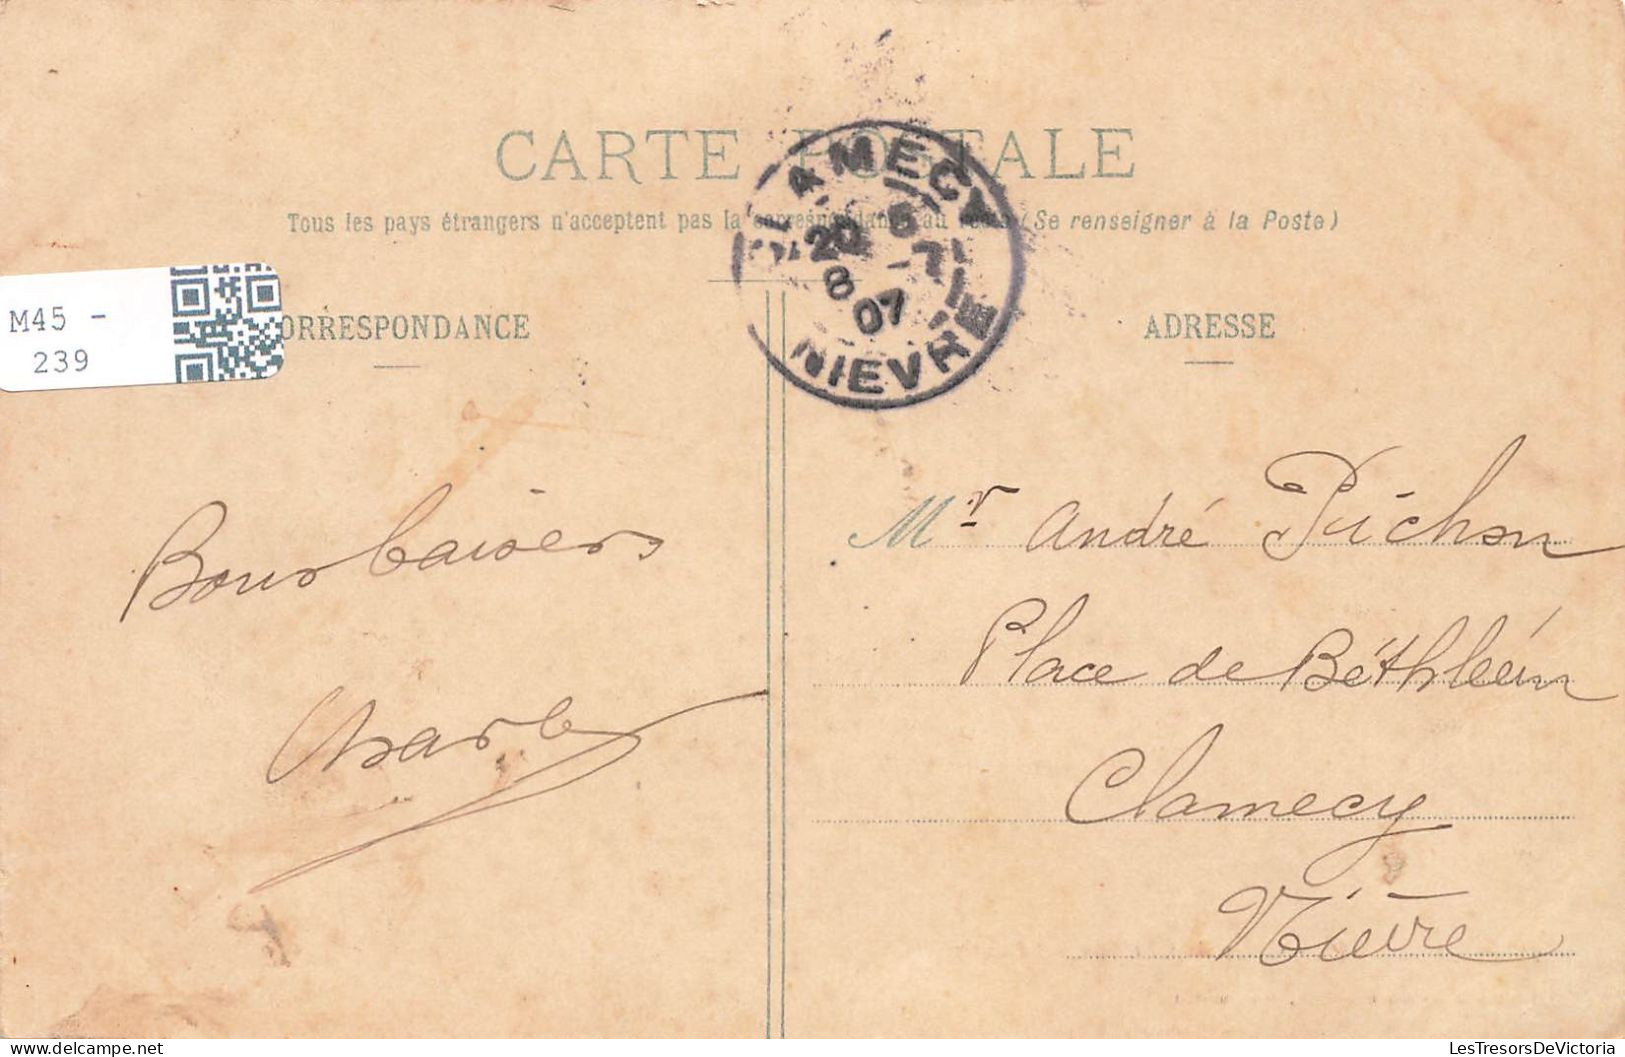 CARTE POSTALE
Tous les pays étrangers n'acceptent pas la correspondance au recto (Se renseigner à la Poste)
CLAMECY
20 8
8 -7
07
NIEVRE
M45 -
239
CORRESPONDANCE
ADRESSE
Bons baisers
Charles
Mr André Pichon
Place de Béthléem
Clamecy
Nièvre
LesTresorsDeVictoria